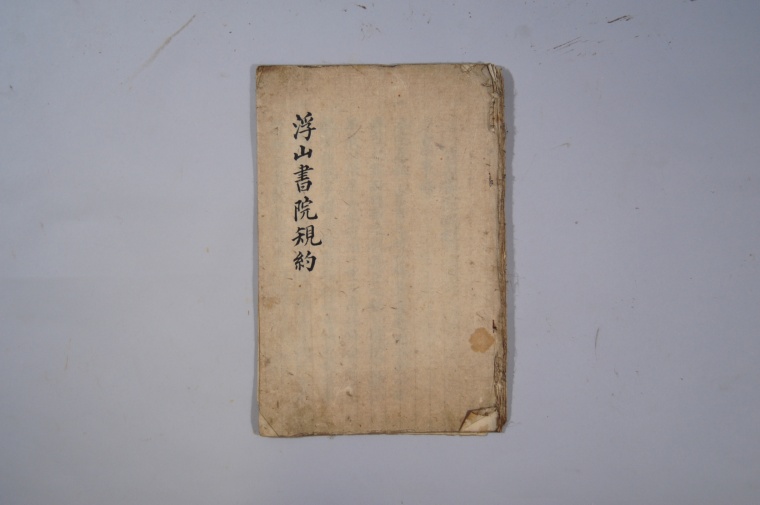 浮山書院規約